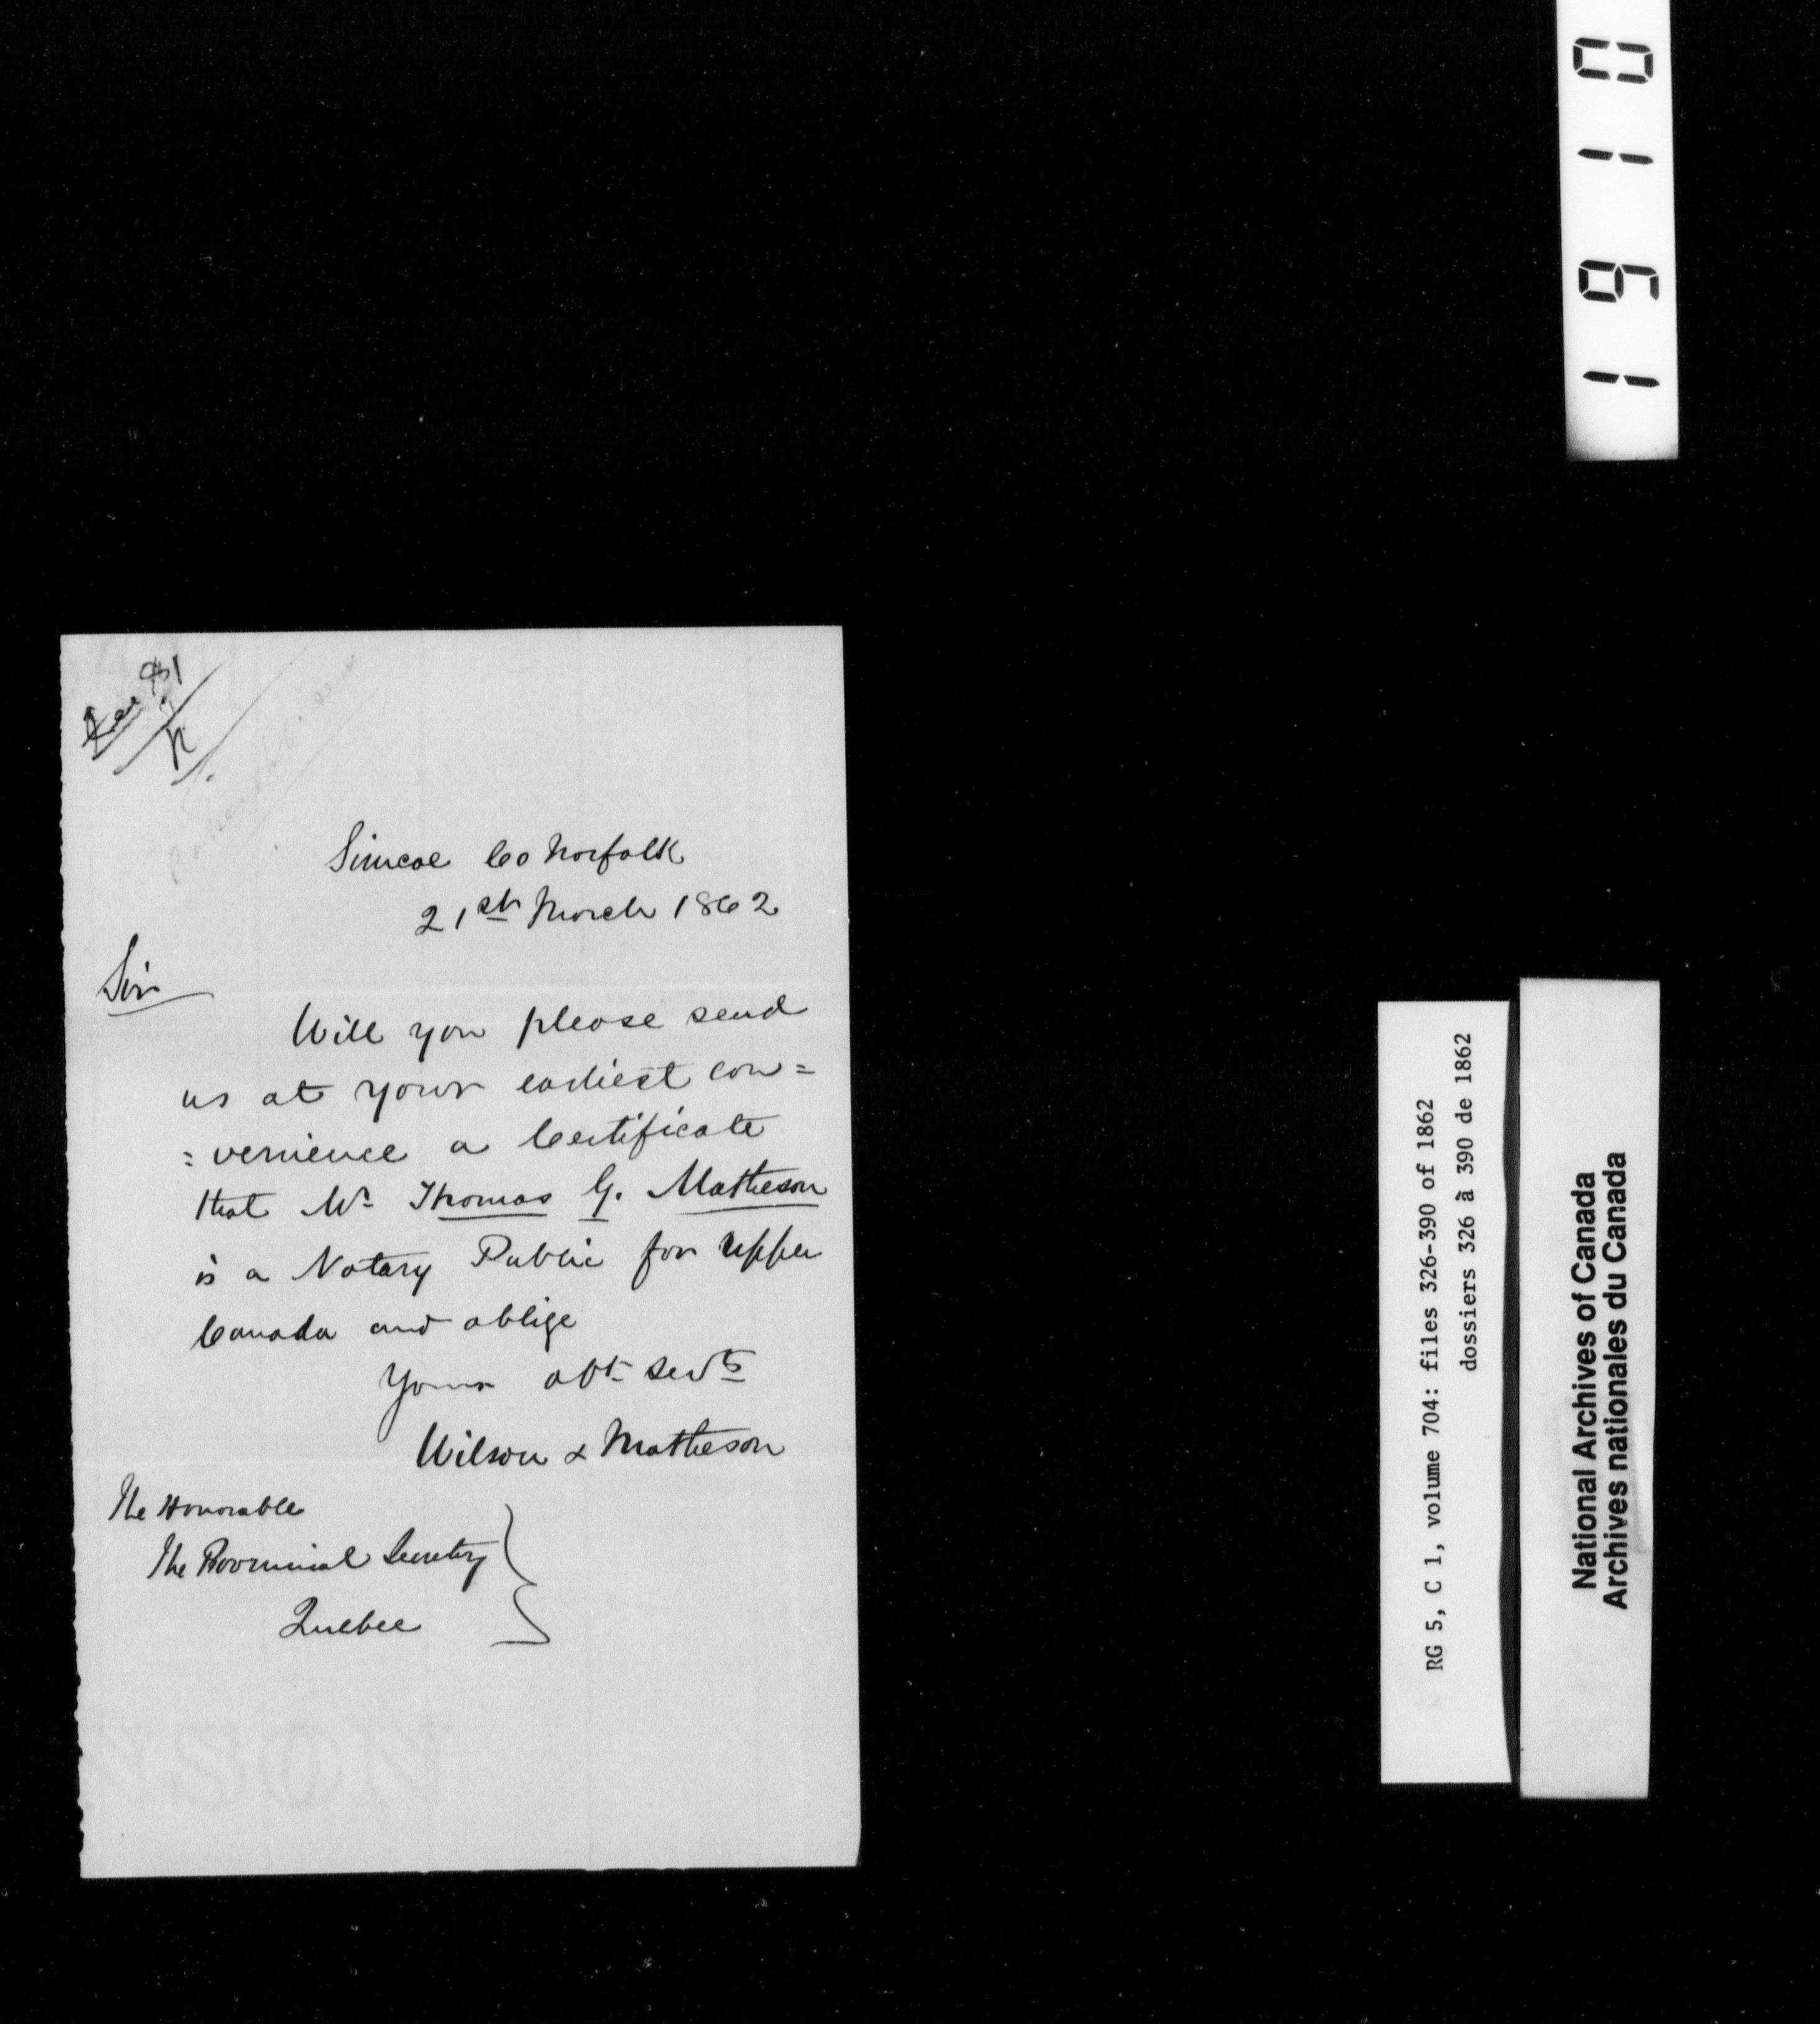 Fee $1
Simcoe Co Norfolk
21st March 1862
Sir
Will you please send
us at your earliest con=
=venience a Certificate
that Mr Thomas G. Matheson
is a Notary Public for Upper
Canada and oblige
Yours obt servts
Wilson & Matheson
The Honorable
The Provincial Secretry
Quebec
0161
RG 5, C 1, volume 704: files 326-390 of 1862
dossiers 326 à 390 de 1862
National Archives of Canada
Archives nationales du Canada